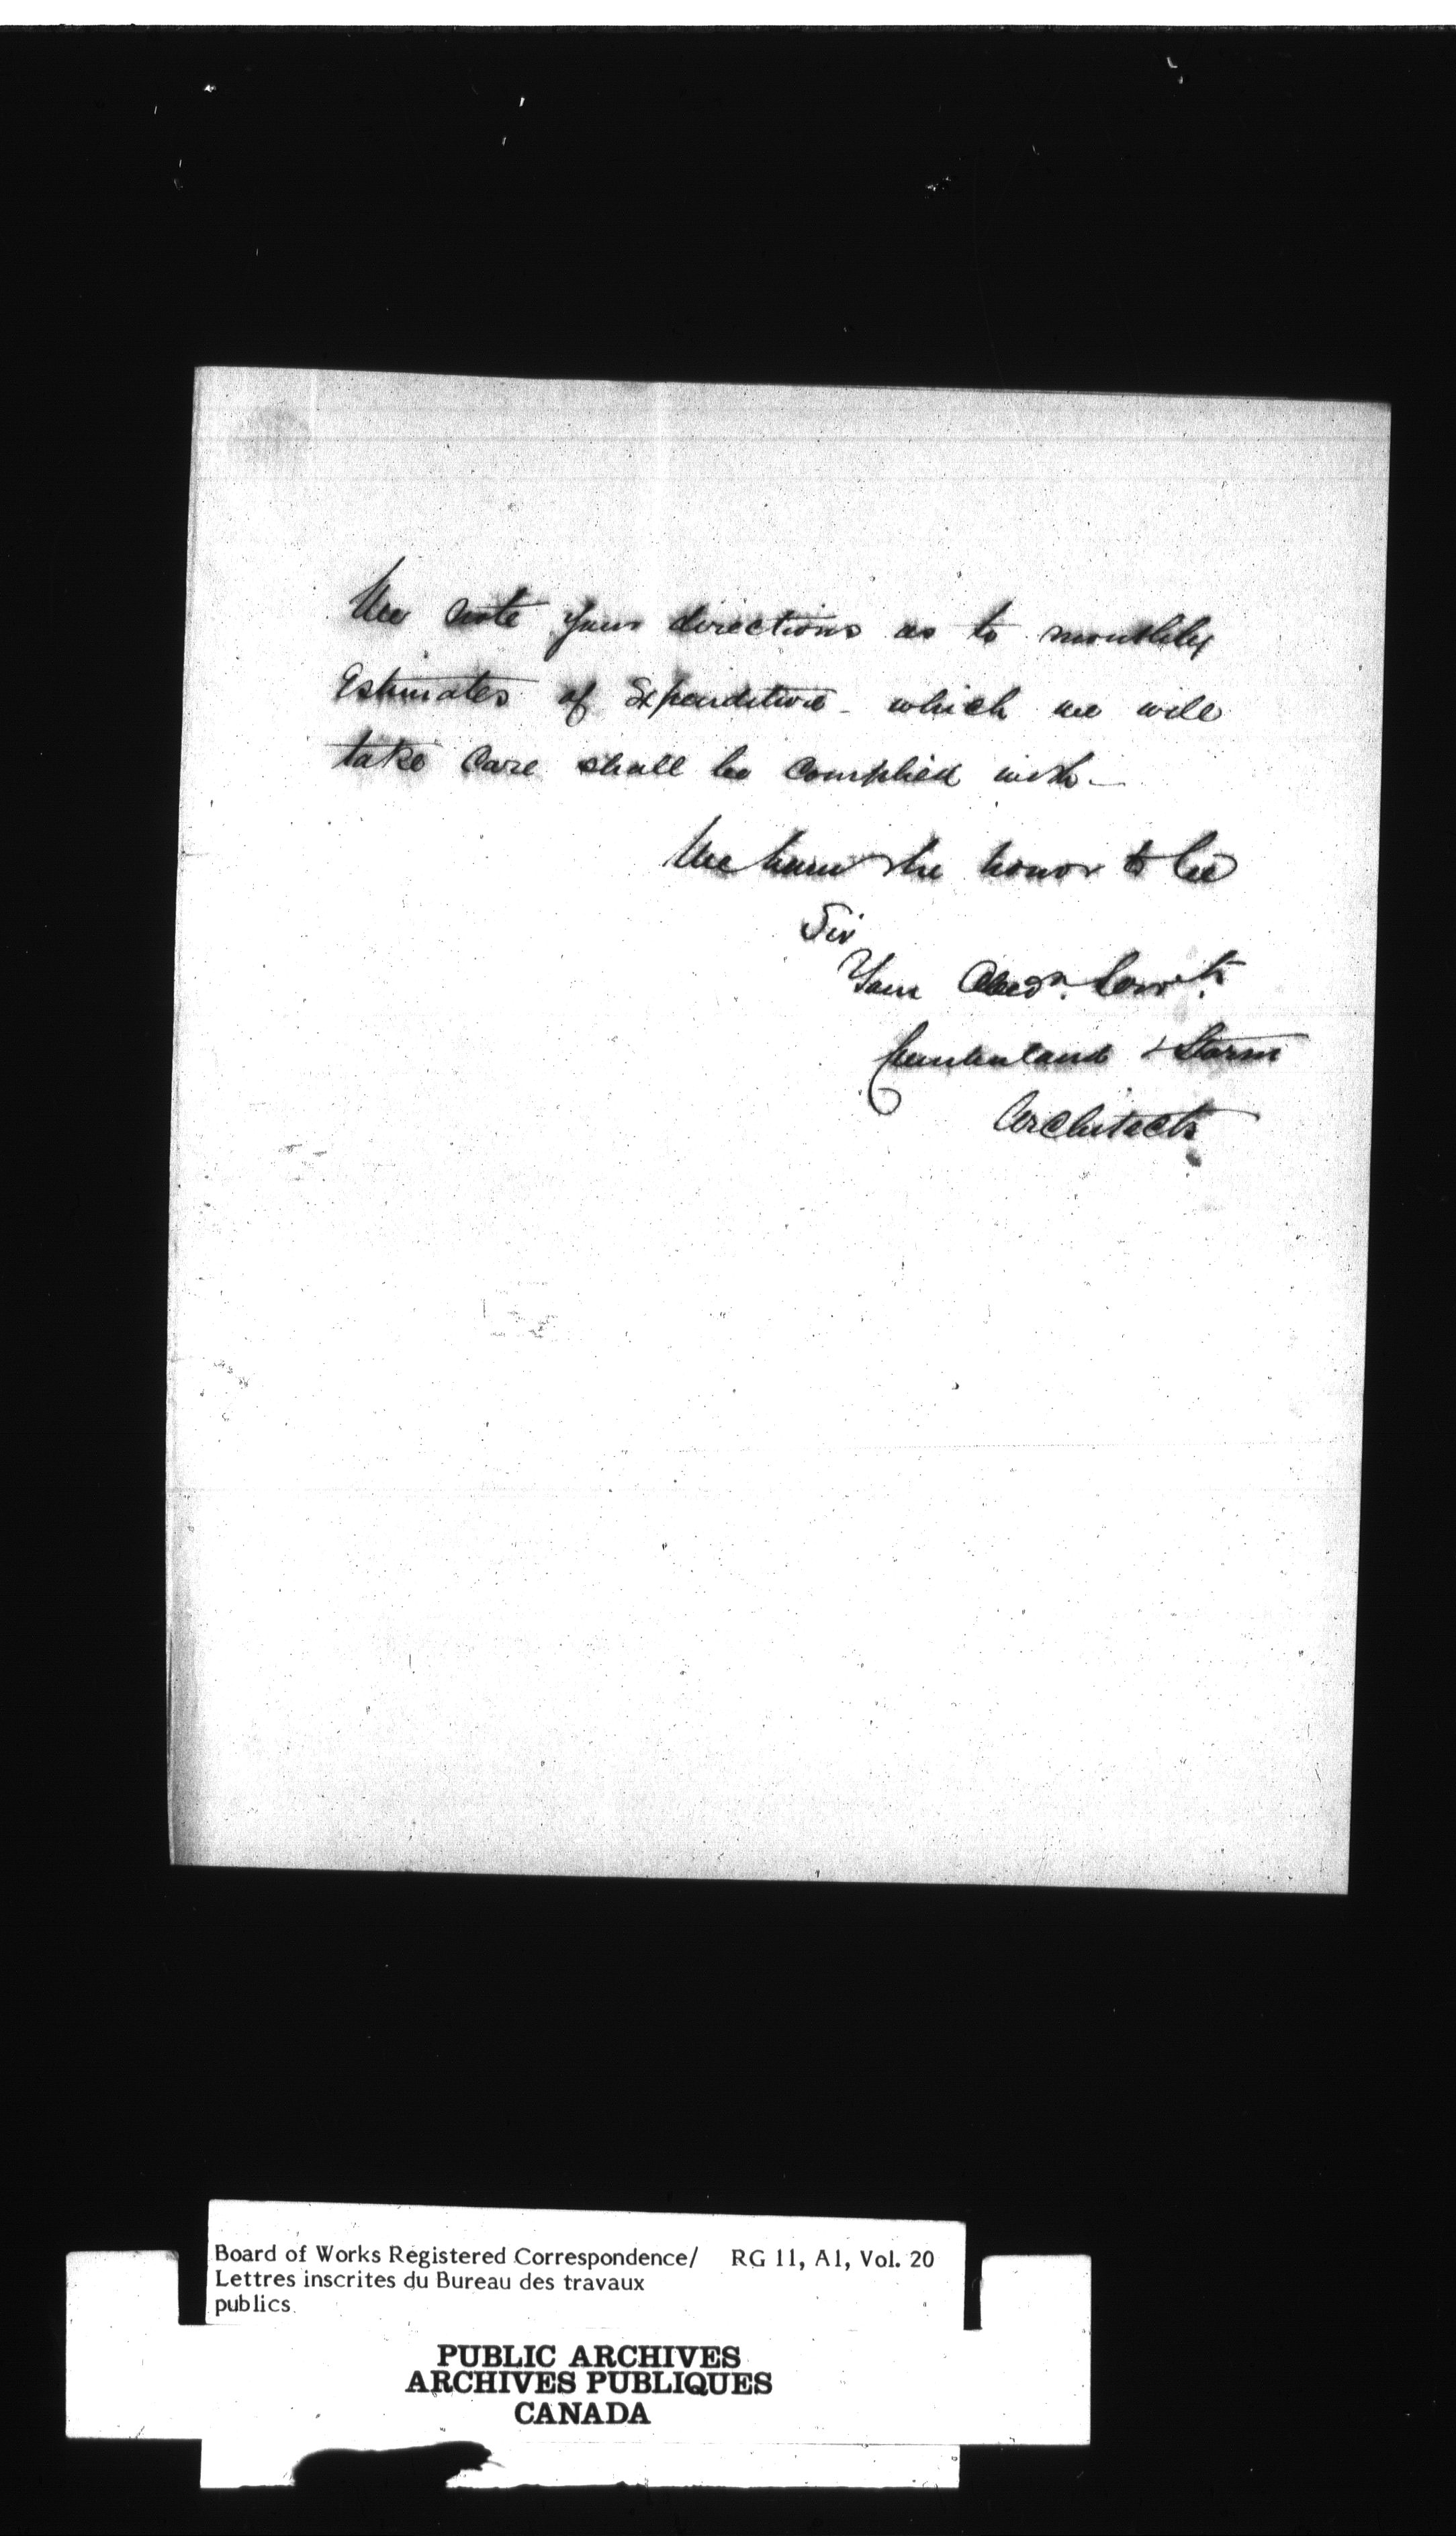 We note your directions as to monthly
Estimates of Expenditure - which we will
take care shall be complied with -
We have the honor to be
Sir
Your Obed.t Serv.ts
Cumberland & Storm
Architects
Board of Works Registered Correspondence/ RG 11, A1, Vol. 20
Lettres inscrites du Bureau des travaux
publics
PUBLIC ARCHIVES
ARCHIVES PUBLIQUES
CANADA